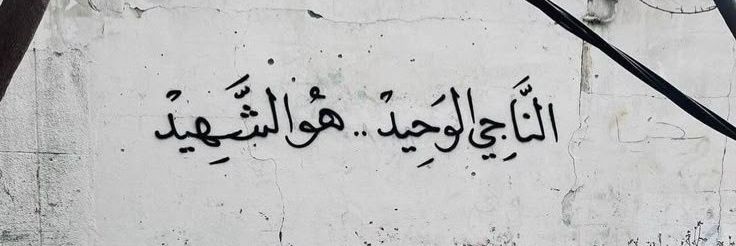 النَّاجِي الوَحِيدْ .. هُو الشَّهِيدْ